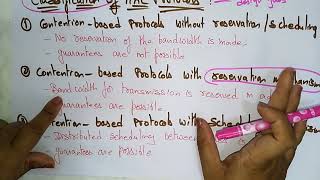 Classification of MAC Protocols :- design goals
① Contention-based Protocols without reservation/scheduling
- No reservation of the bandwidth is made.
- guarantees are not possible
② Contention-based Protocols with reservation mechanism
- Bandwidth for transmission is reserved in a
- Guarantees are possible.
Contention-based Protocols with Sched
- Distributed scheduling between
- guarantees are possible